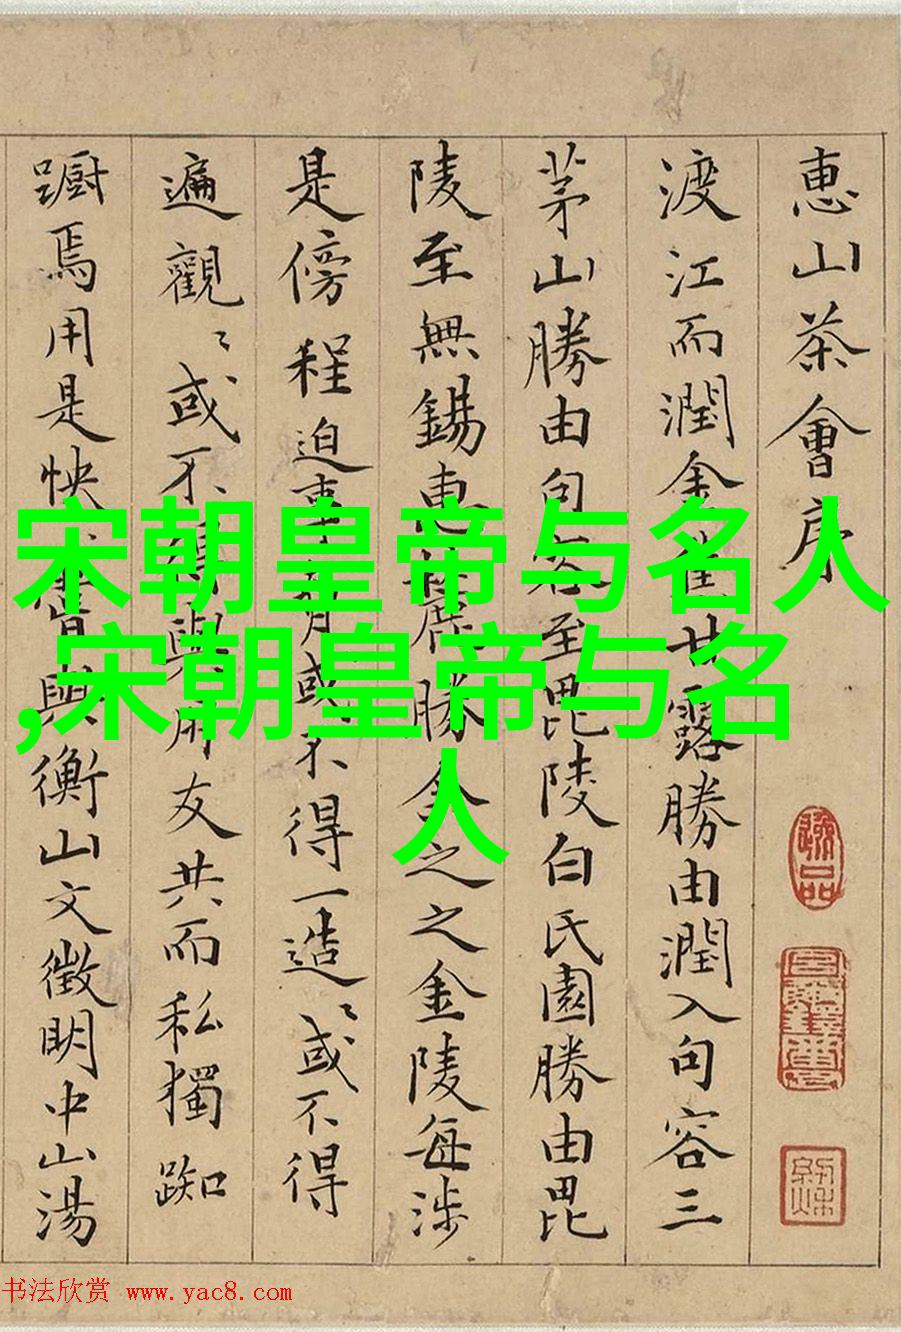 惠山茶會序
渡江而潤金焦甘露勝由潤入句容三
茅山勝由句容至毘陵白氏園勝由毘
陵至無錫惠勝金之之金陵每涉
是傍程迫事有或不得一造〻或不得
遍觀〻或不得與朋友共而私獨踟
躕焉用是怏皆與衡山文徵明中山湯
宋朝皇帝与名人
,宋朝皇帝与名
人
书法欣赏 www.yac8.com